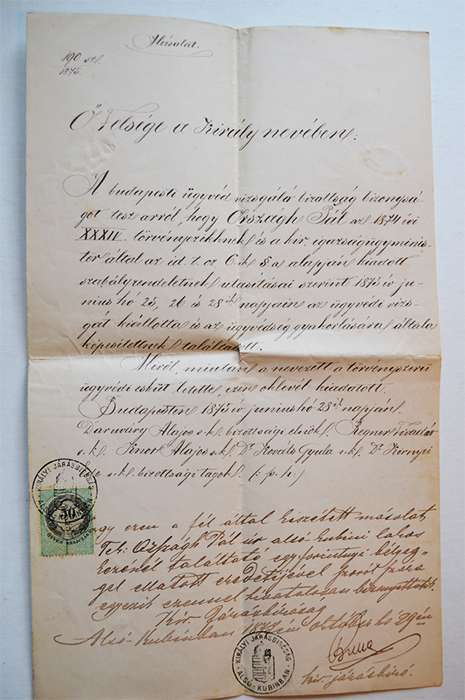 Másolat.
190 sz.
1875.
Ő Felsége a Király nevében:
A budapesti ügyvéd vizsgáló bizottság bizonysá-
got tesz arról, hogy Országh Pál az 1874 évi
XXXIV. törvényczikknek és a kir. igazságügyminis-
ter által az id. t. cz 6. § a alapján kiadott
szabályrendeletnek utasításai szerint 1875 év ju-
nius hó 25, 26 és 28 napjain az ügyvédi vizs-
gát kiállotta és az ügyvédség gyakorlására általa
képesítettnek találtatott.
Miről, miután a nevezett a törvényszerű
ügyvédi esküt letette, ezen oklevél kiadatott.
Budapesten 1875 év junius hó 28 napján.
Daruváry Alajos s.k. bizottsági elnök
s.k. Knorr Alajos s.k. Dr Kováts Gyula s.k. Dr Környei
s.k. bizottsági tagok. (p. h.)
KIRÁLYI JÁRÁSBIRÓSÁG
Hogy ezen a fél által készített másolat
Országh Pál úr alsó kubini lakos
kezénél található egy forintnyi bélyeg-
gel ellátott eredetijével szóról szóra
egyező ezennel hivatalosan bizonyíttatik.
Kir. Járásbíróság
Alsó Kubinban október hó 29én
KIRÁLYI JÁRÁSBIRÓSÁG
ALSÓ-KUBINBAN
kir. járásbíró.